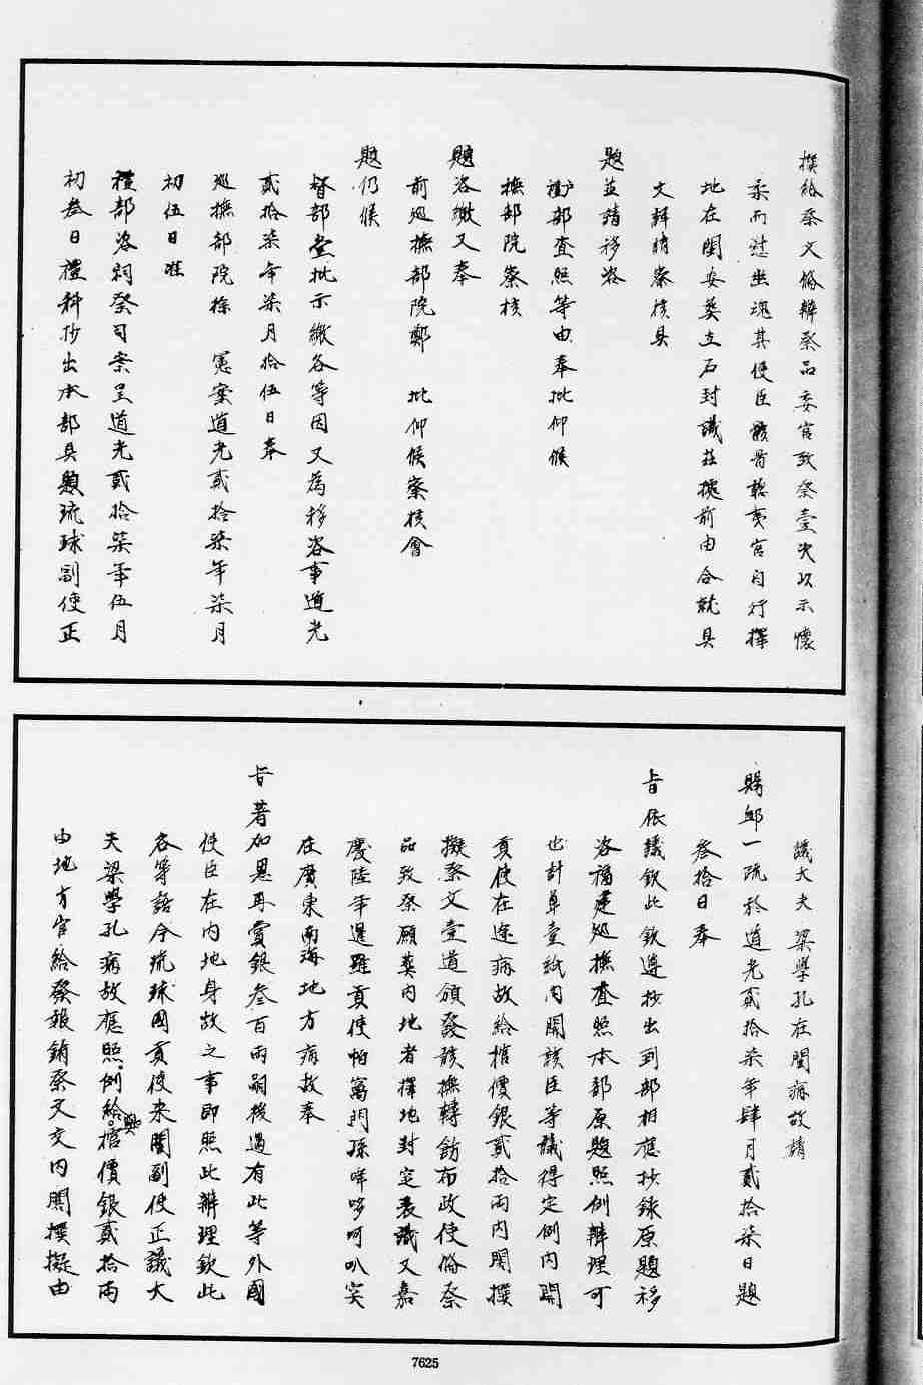 撰給祭文俻辦祭品委官致祭壹次以示懷
柔而慰坐魂其使臣骸骨聽夷官自行擇
地在閩安葬立石封識莊擡前由合就具
文詳請察核具
題並請移咨
部查照等由奉批仰候
撫部院察核
題咨繳又奉
前廵撫部院鄭 批仰候察核會
題仍候
督部堂批示繳各等因又為移咨事道光
貳拾柒年柒月拾伍日奉
廵撫部院徐 憲案道光貳拾柒年柒月
初伍日准
禮部咨祠祭司案呈道光貳拾柒年伍月
初叁日禮科抄出本部具題琉球副使正
議大夫梁學孔在閩病故請
賜卹一疏於道光貳拾柒年肆月貳拾柒日題
叁拾日奉
旨依議欽此欽遵抄出到部相應抄錄原題移
咨福建廵撫查照本部原題照例辦理可
也計单壹紙內開該臣等議得定例內開
貢使在途病故給棺價銀貳拾兩內閣撰
擬祭文壹道頒發該撫轉飭布政使俻祭
品致祭願葬內地者擇地封定表識又嘉
慶陸年暹羅貢使帕窩們孫哖哆呵叭突
在廣東南海地方病故奉
旨著加恩再賞銀叁百兩嗣後遇有此等外國
使臣在內地身故之事即照此辦理欽此
各等語今琉球國貢使来閩副使正議大
夫梁學孔病故應照例給與棺價銀貳拾兩
由地方官給發報銷祭文交內閣撰擬由
7625